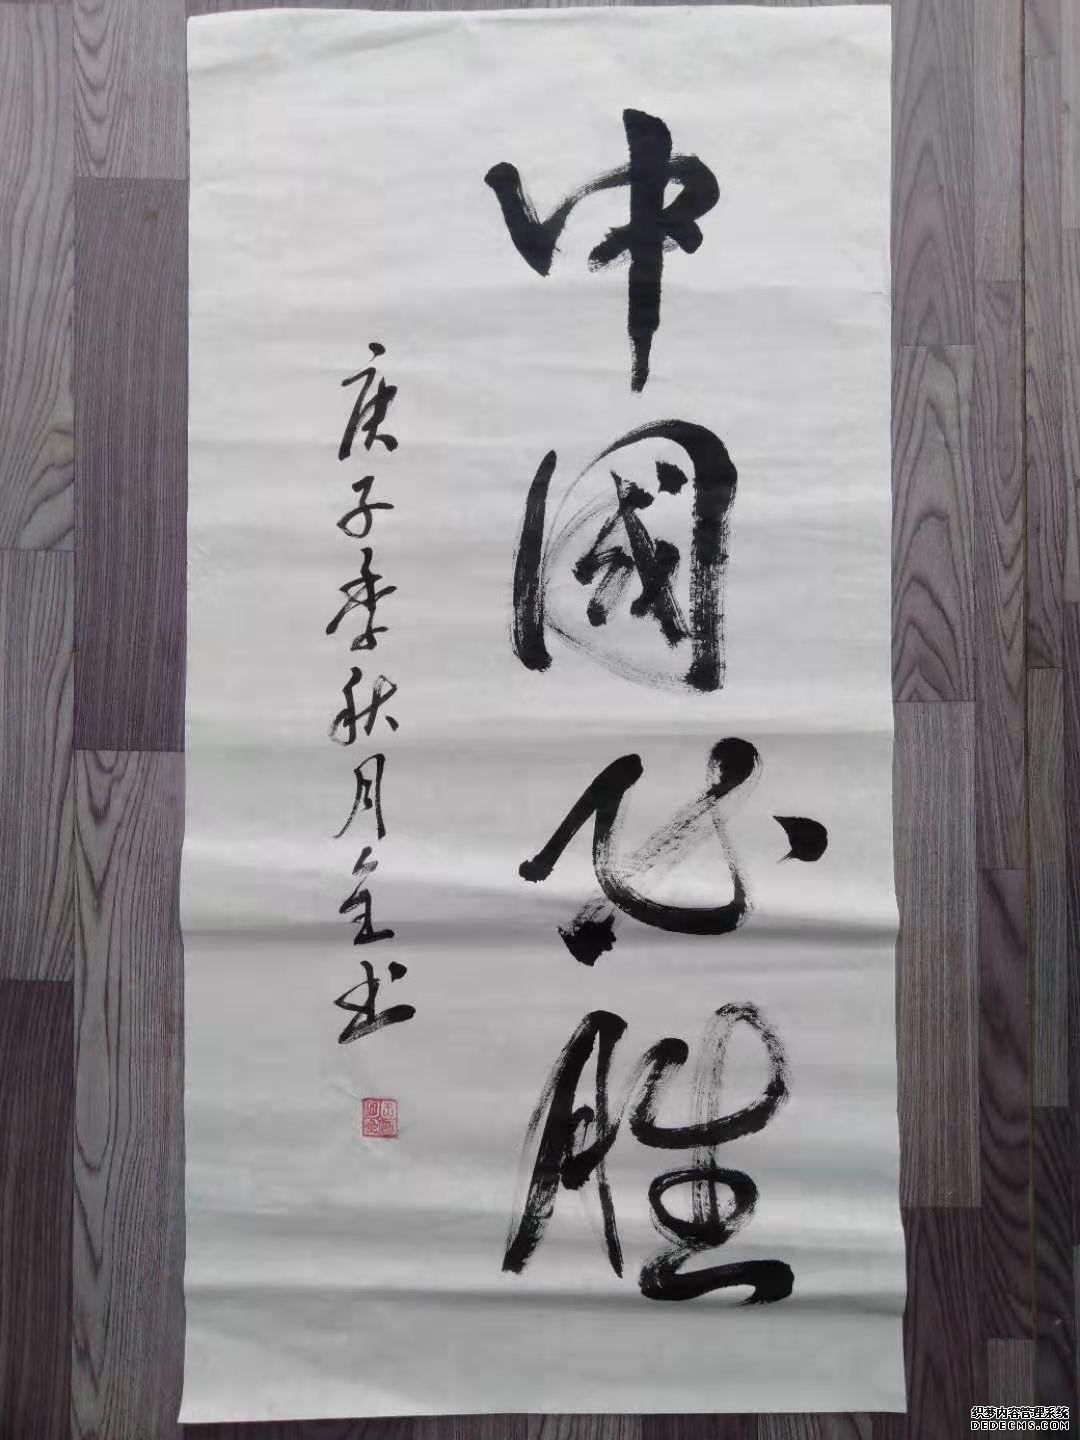 中國必胜
庚子季秋月全书
织梦内容管理系统
DEDECMS.COM